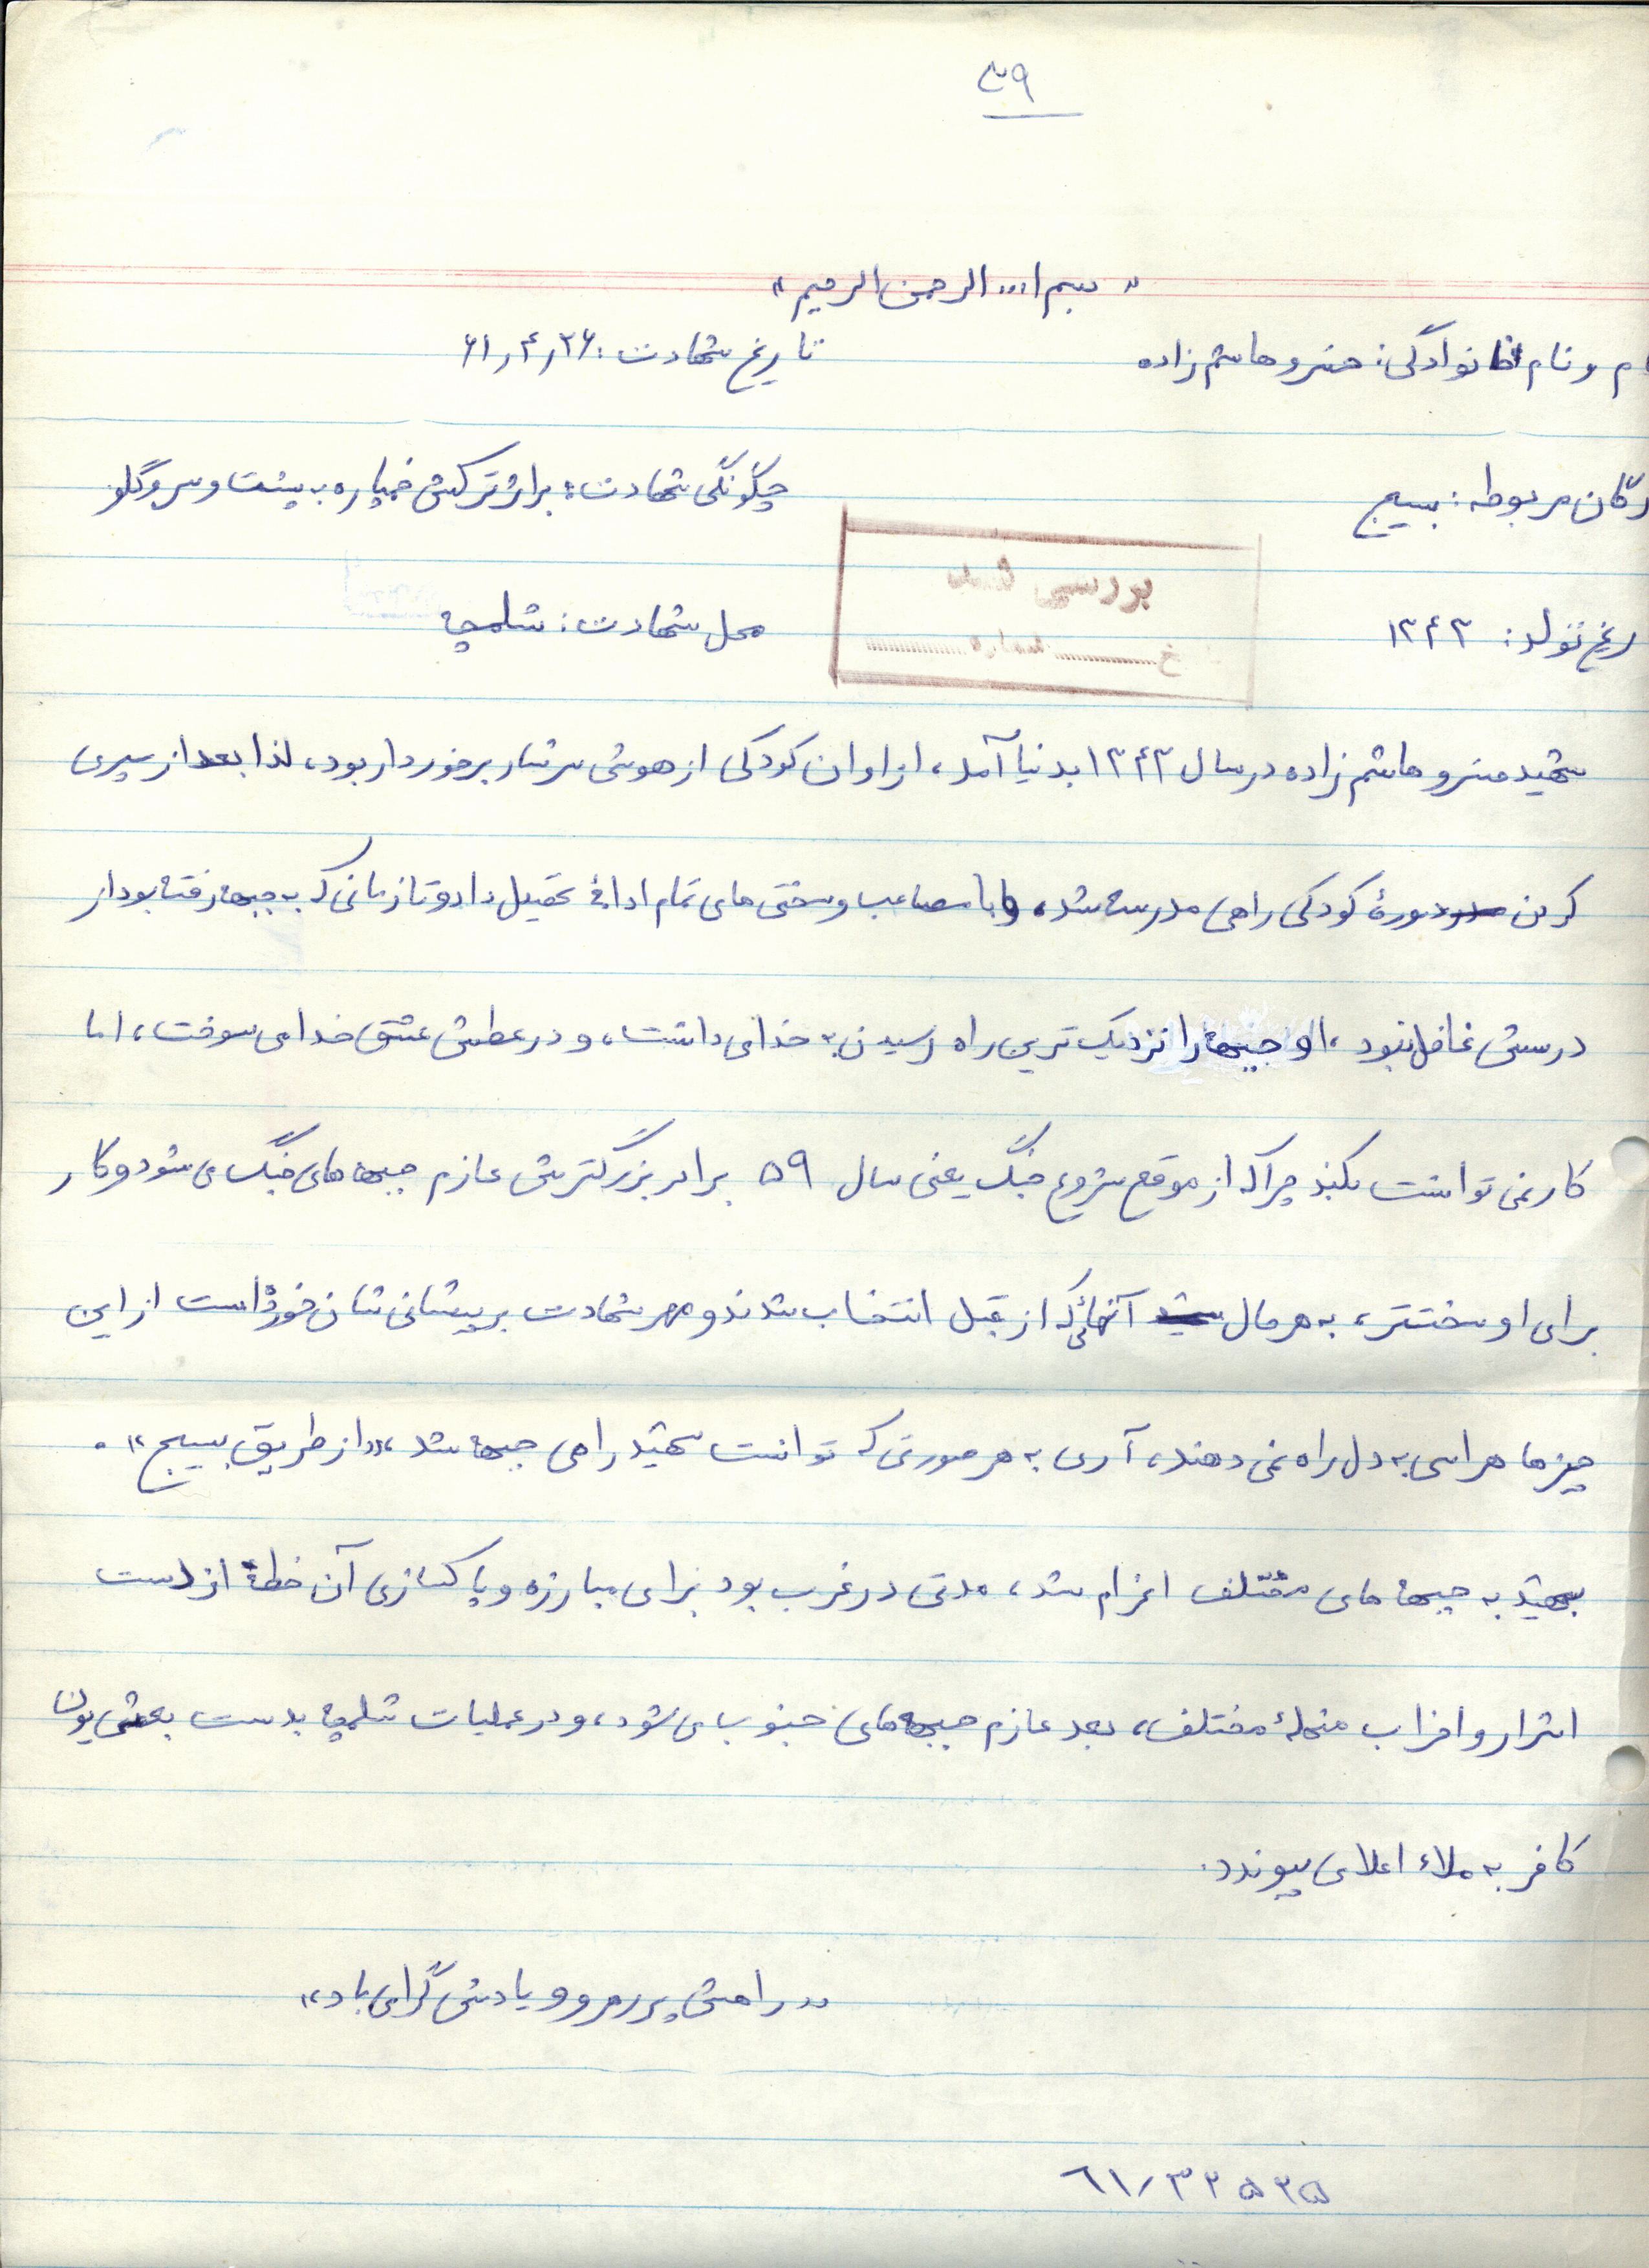 ۳۹
«بسم ا... الرحمن الرحیم»
ام و نام خانوادگی: خسرو هاشم زاده
تاریخ شهادت: ۶۱/۴/۲۶
رگان مربوطه: بسیج
چگونگی شهادت: براثر ترکش خمپاره به پشت و سر و گلو
بررسی شد
ریخ تولد: ۱۳۴۳
محل شهادت: شلمچه
خ ........ شماره ........
شهید خسرو هاشم زاده در سال ۱۳۴۳ بدنیا آمد، از اوان کودکی از هوشی سرشار برخوردار بود، لذا بعد از سپری
کردن دورهٔ کودکی راهی مدرسه شد، و با مصاعب و سختی های تمام ادامهٔ تحصیل داد و تا زمانی که به جبهه رفته بود از
درسش غافل نبود، او جبهه را نزدیک ترین راه رسیدن به خدا می دانست، و در عطش عشق خدا می سوخت، اما
کار نمی توانست بکند چرا که از موقع شروع جنگ یعنی سال ۵۹ برادر بزرگترش عازم جبهه های جنگ می شود و کار
برای او سختتر، به هر حال آنهائی که از قبل انتخاب شدند و مهر شهادت بر پیشانی شان خورده است از این
چیزها هراسی به دل راه نمی دهند، آری به هر صورتی که توانست شهید راهی جبهه شد، «از طریق بسیج».
شهید به جبهه های مختلف اعزام شد، مدتی در غرب بود برای مبارزه و پاکسازی آن خطهٔ از دست
اشرار و احزاب منحلهٔ مختلف، بعد عازم جبهه های جنوب می شود، و در عملیات شلمچه بدست بعثی یون
کافر به ملاء اعلا می پیوندد.
«راهش پر رهرو و یادش گرامی باد»
۶۱/۳۲۵۲۵